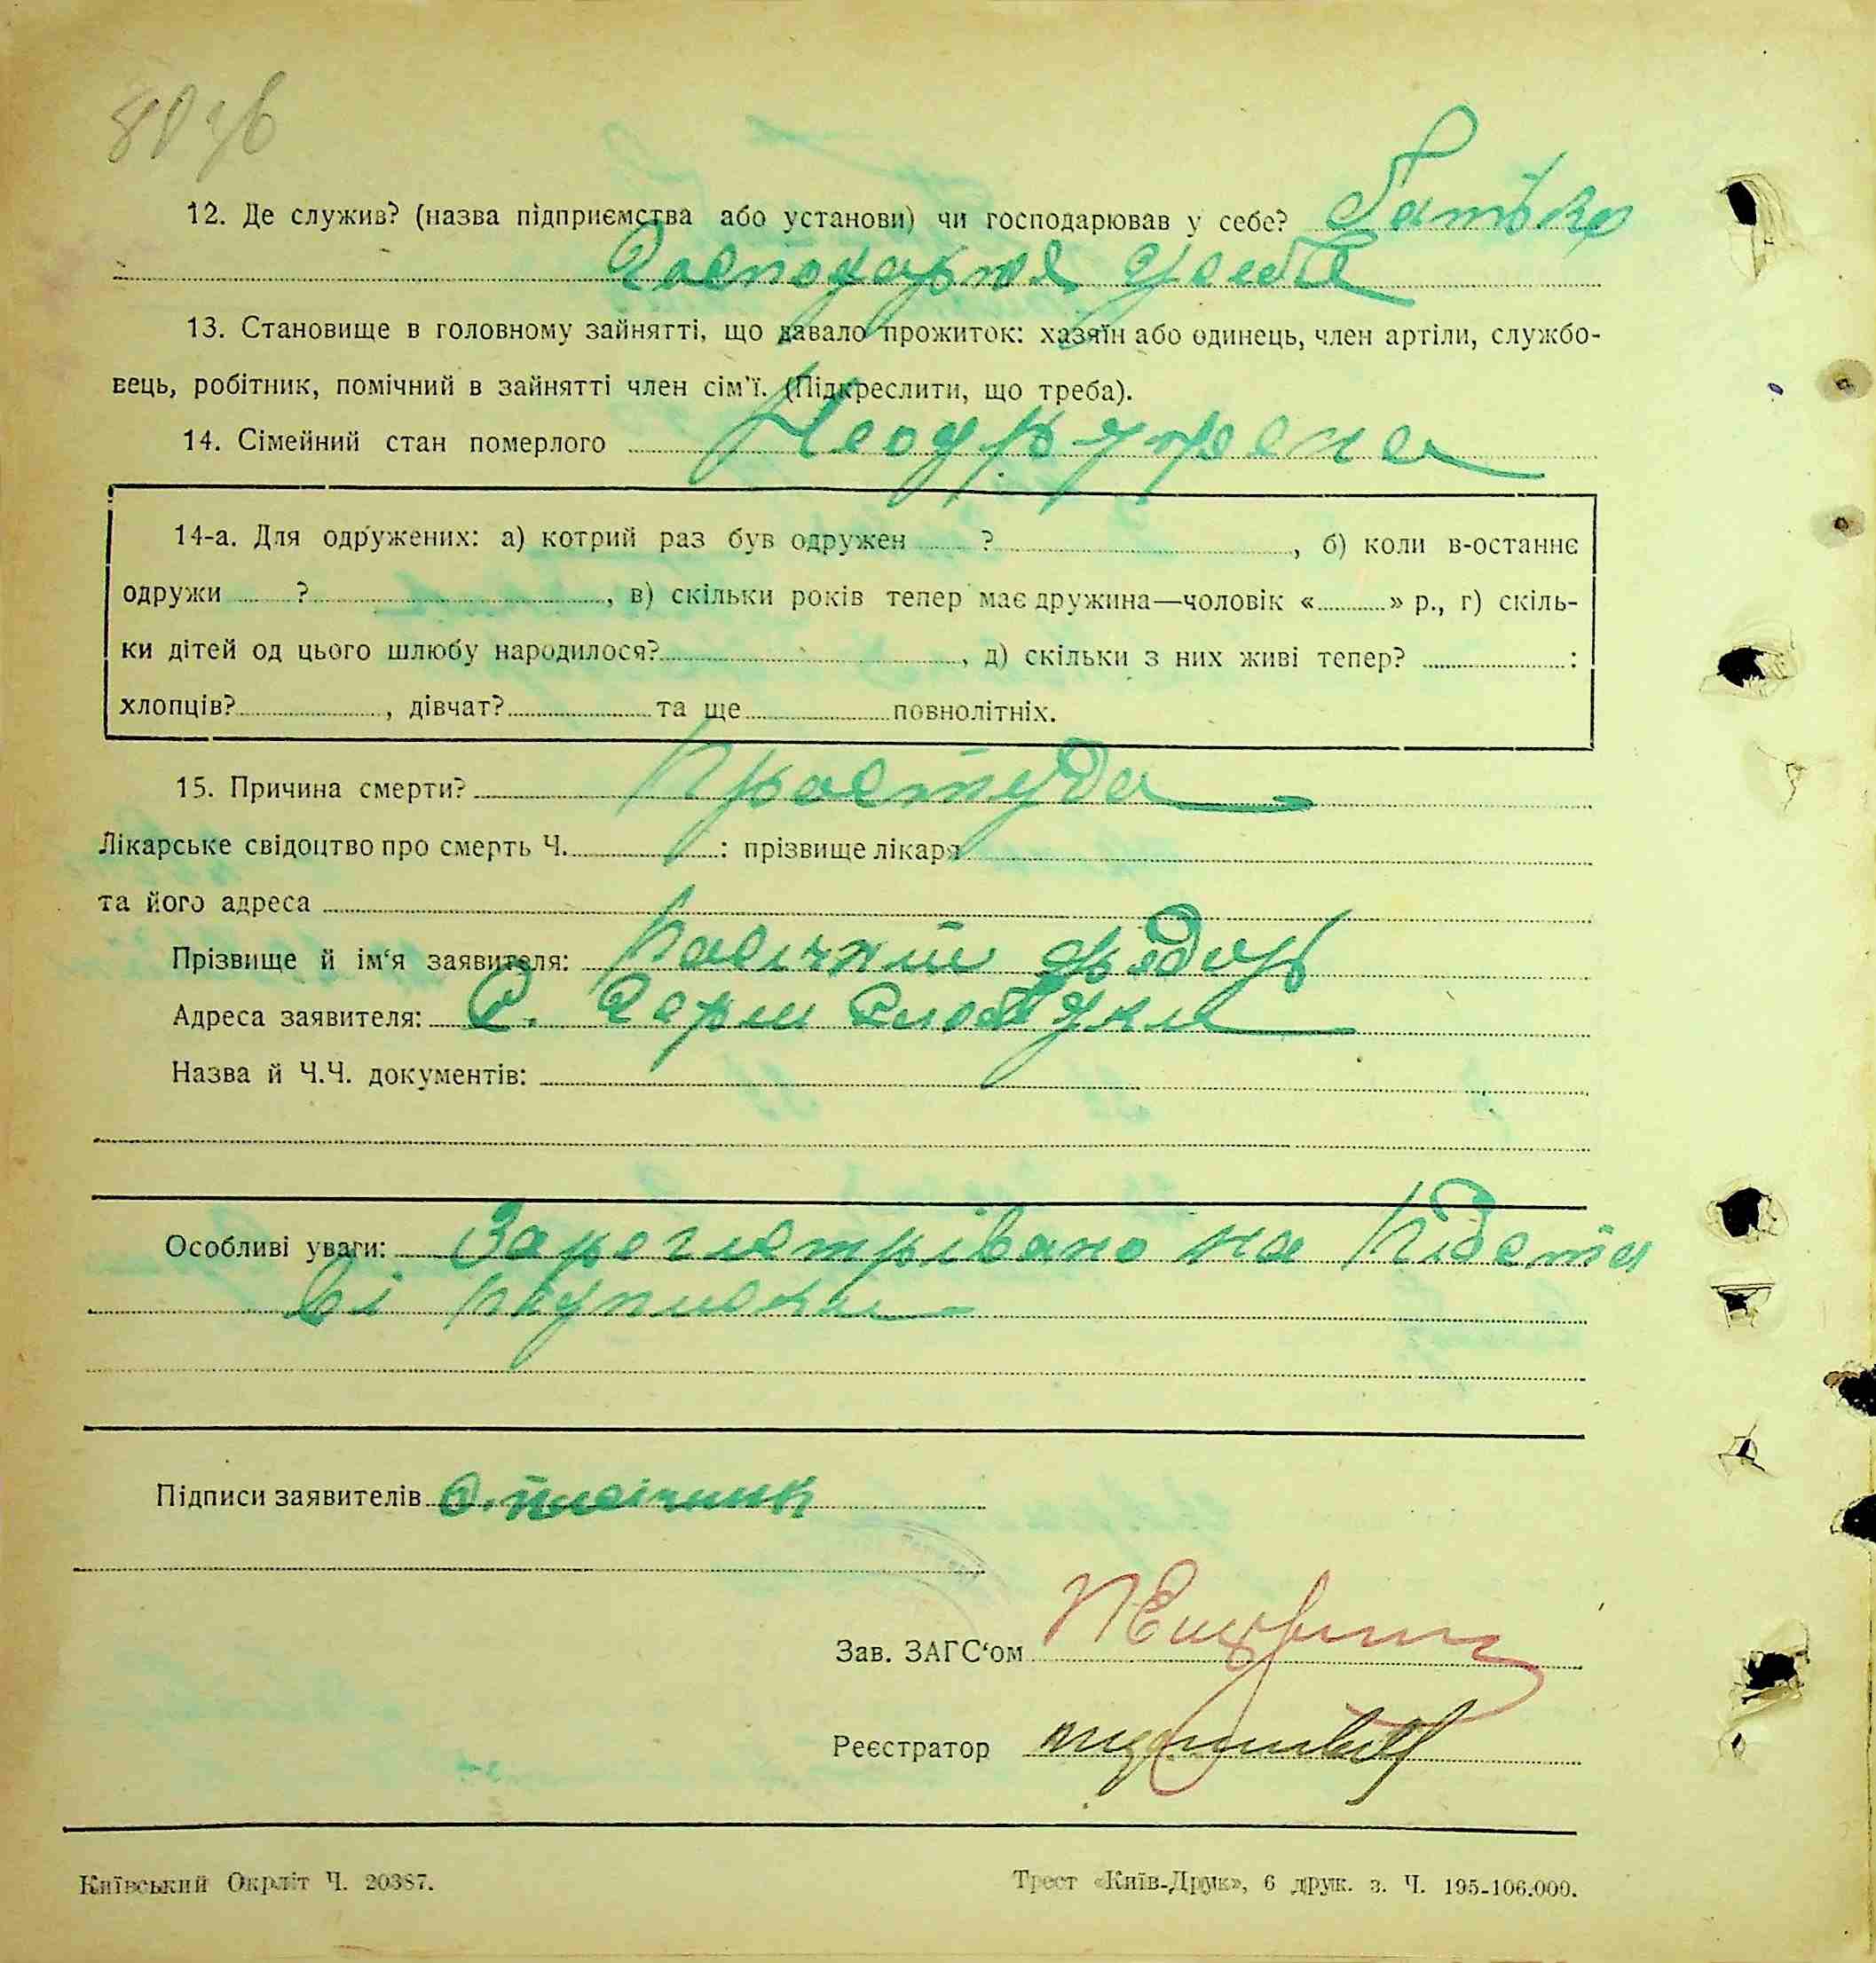 12. Де служив? (назва підприємства або установи) чи господарював у себе? Батько
Господарює у себе
13. Становище в головному зайнятті, що давало прожиток: хазяїн або одинець, член артіли, службо-
вець, робітник, помічний в зайнятті член сім'ї. (Підкреслити, що треба).
14. Сімейний стан померлого Неодружена
14-а. Для одружених: а) котрий раз був одружен ?, б) коли в-останнє
одружи ?, в) скільки років тепер має дружина—чоловік « » р., г) скіль-
ки дітей од цього шлюбу народилося?, д) скільки з них живі тепер? :
хлопців?, дівчат? та ще повнолітніх.
15. Причина смерти? Простуда
Лікарське свідоцтво про смерть Ч. : прізвище лікаря
та його адреса
Прізвище й ім'я заявителя: Пасічний Федор
Адреса заявителя: С.
Назва й Ч.Ч. документів:
Особливі уваги: Зарегистрівано на Підста
ві
Підписи заявителів
Зав. ЗАГС'ом
Реєстратор
Київський Окрліт Ч. 20387.
Трест «Київ-Друк», 6 друк. з. Ч. 195-106.000.